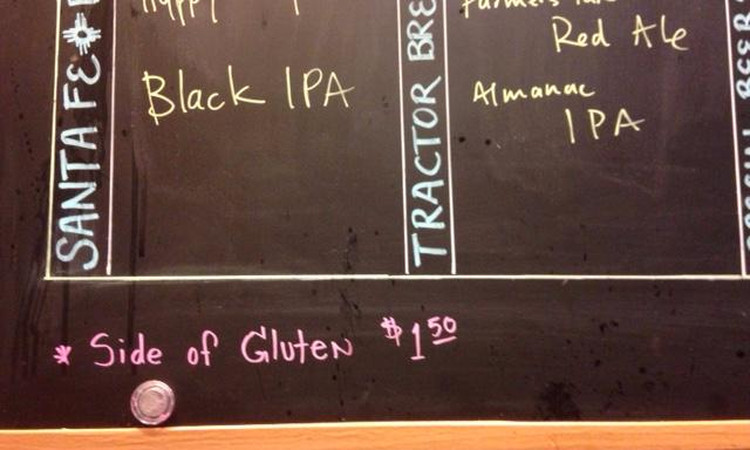 SANTA FE
Black IPA
TRACTOR
Red Ale
Almanac
IPA
* Side of Gluten $1.50